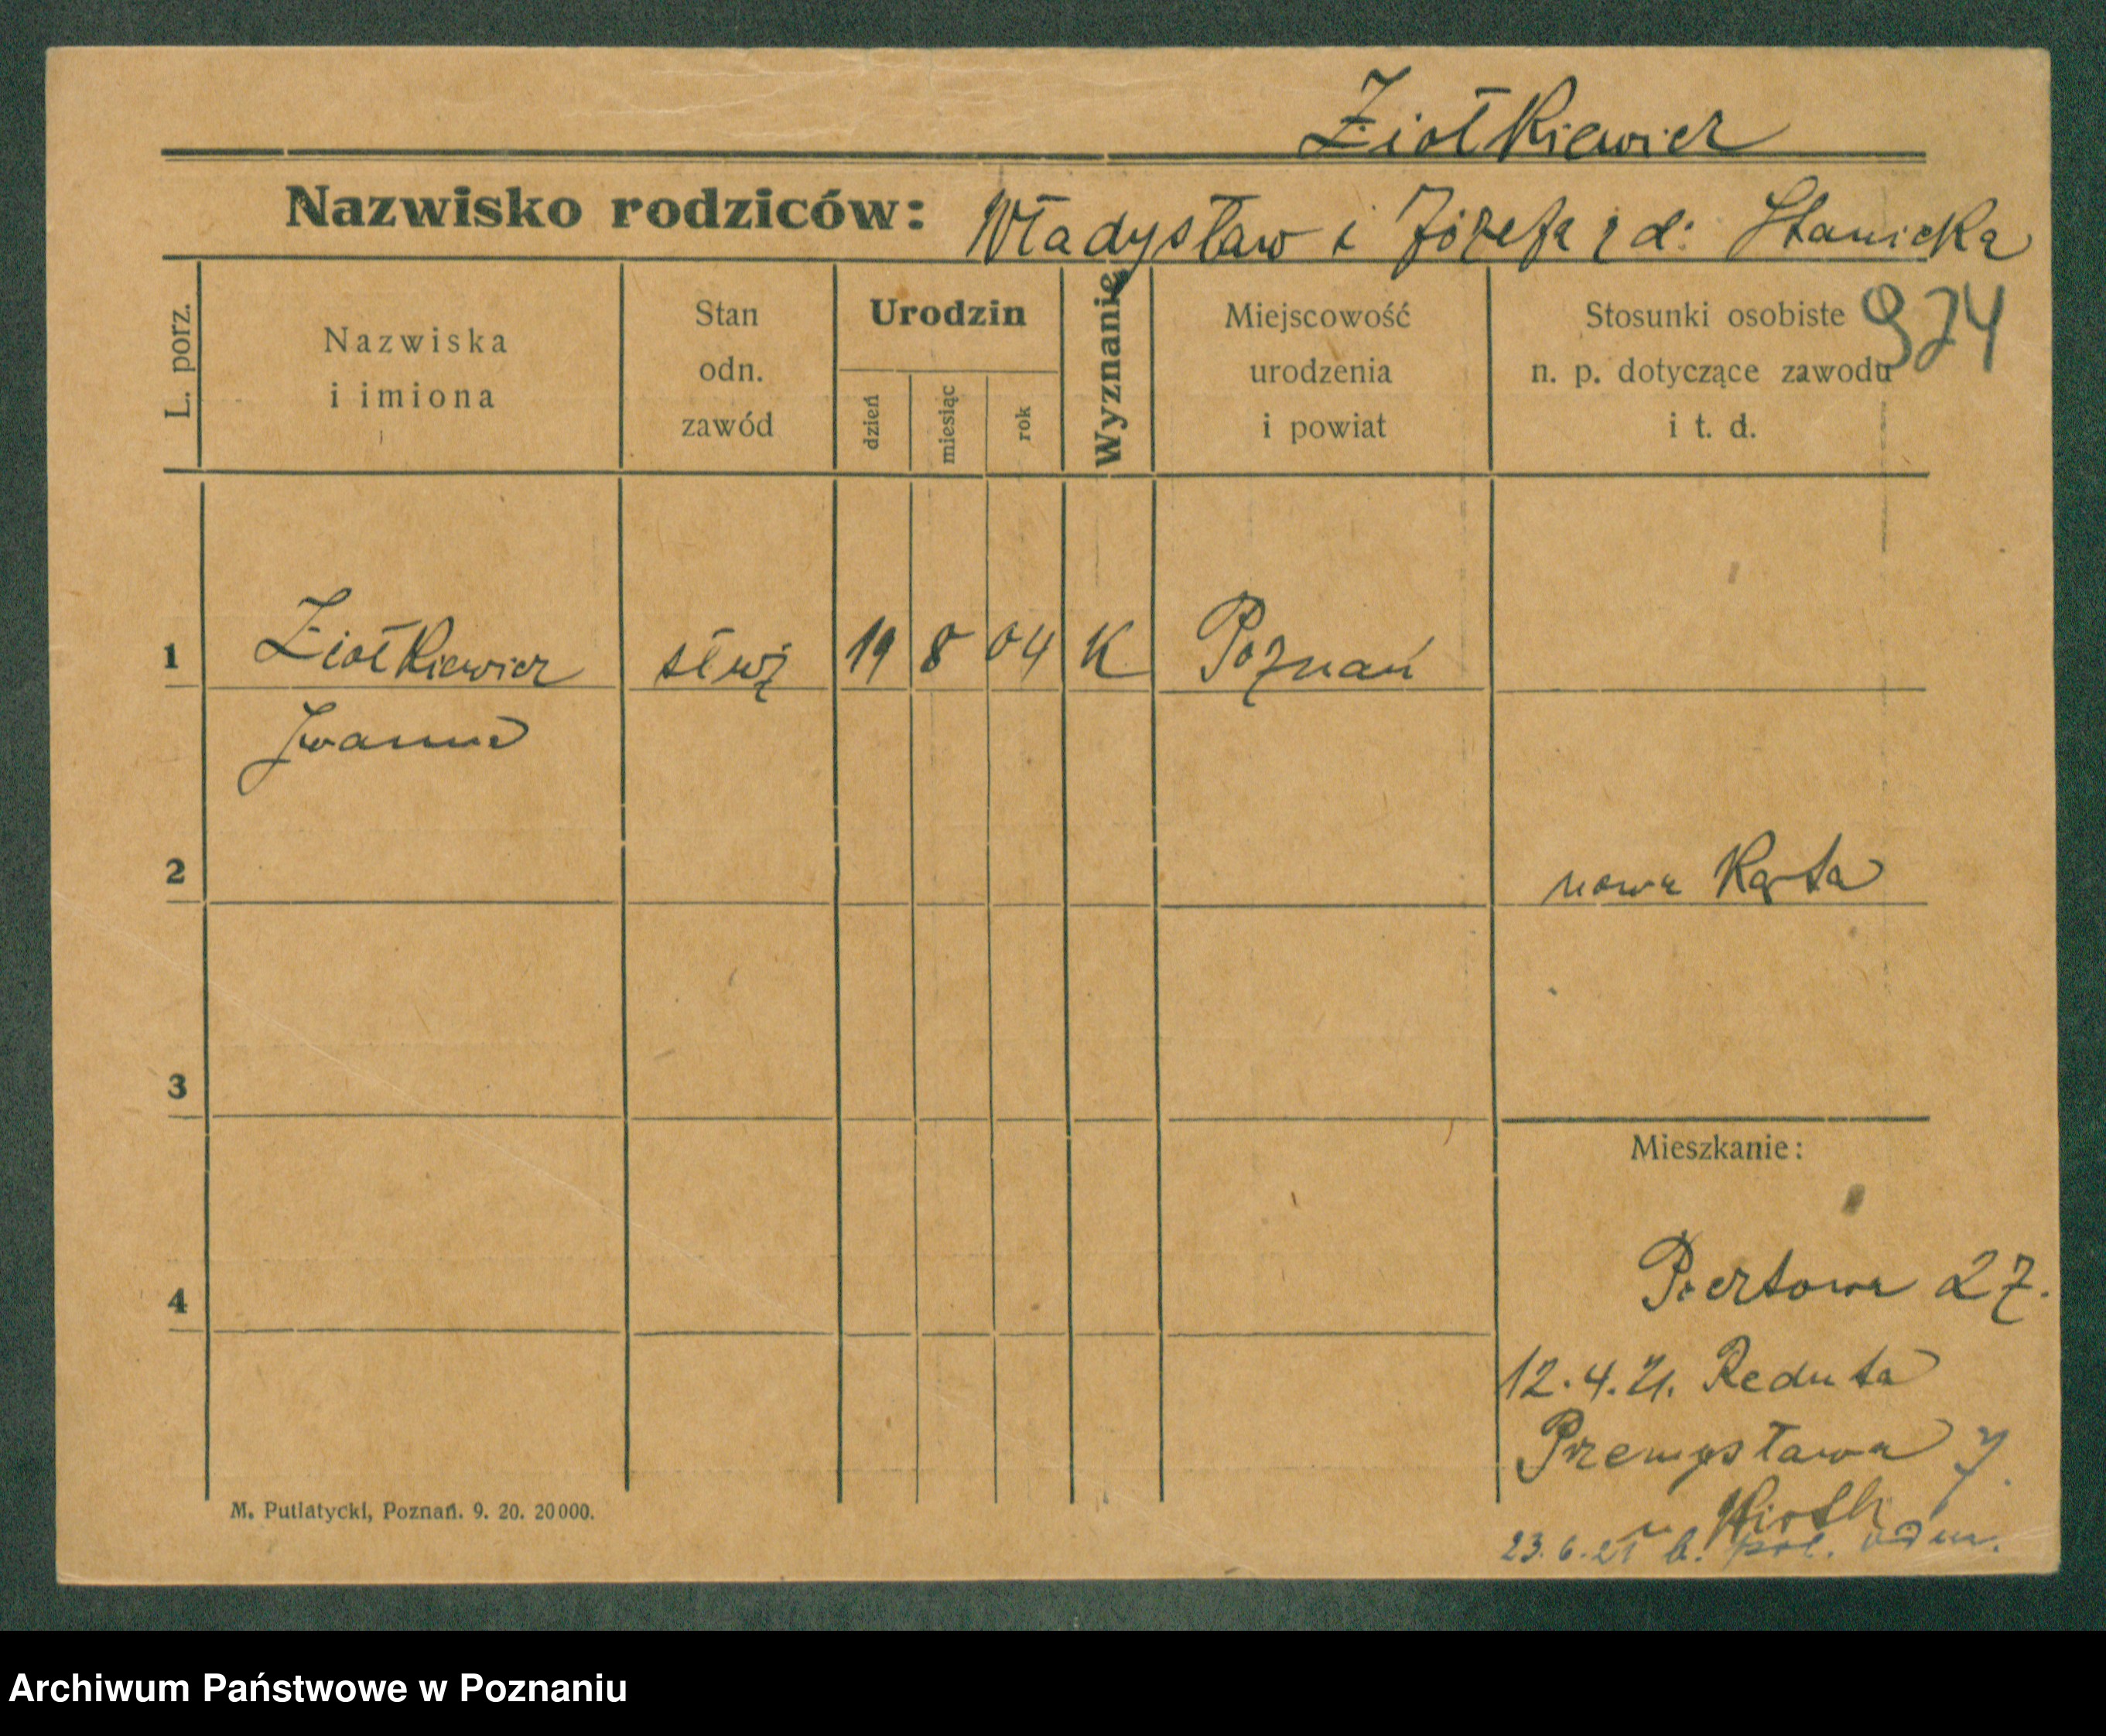 Ziółkiewicz
Nazwisko rodziców: Władysław i Józefa z d: Stanicka
974
L. porz.
Nazwiska
i imiona
Stan
odn.
zawód
Urodzin
dzień
miesiąc
rok
Wyznanie
Miejscowość
urodzenia
i powiat
Stosunki osobiste
n. p. dotyczące zawodu
i t. d.
1 Ziółkiewicz służ 19 8 04 K Poznań
Joanna
2 nowa Karta
3
Mieszkanie:
4 27.
12.4.21. Reduta
Przemysława 7.
Wirth
23.6.21 b. pol. odm.
M. Putiatycki, Poznań. 9. 20. 20000.
Archiwum Państwowe w Poznaniu